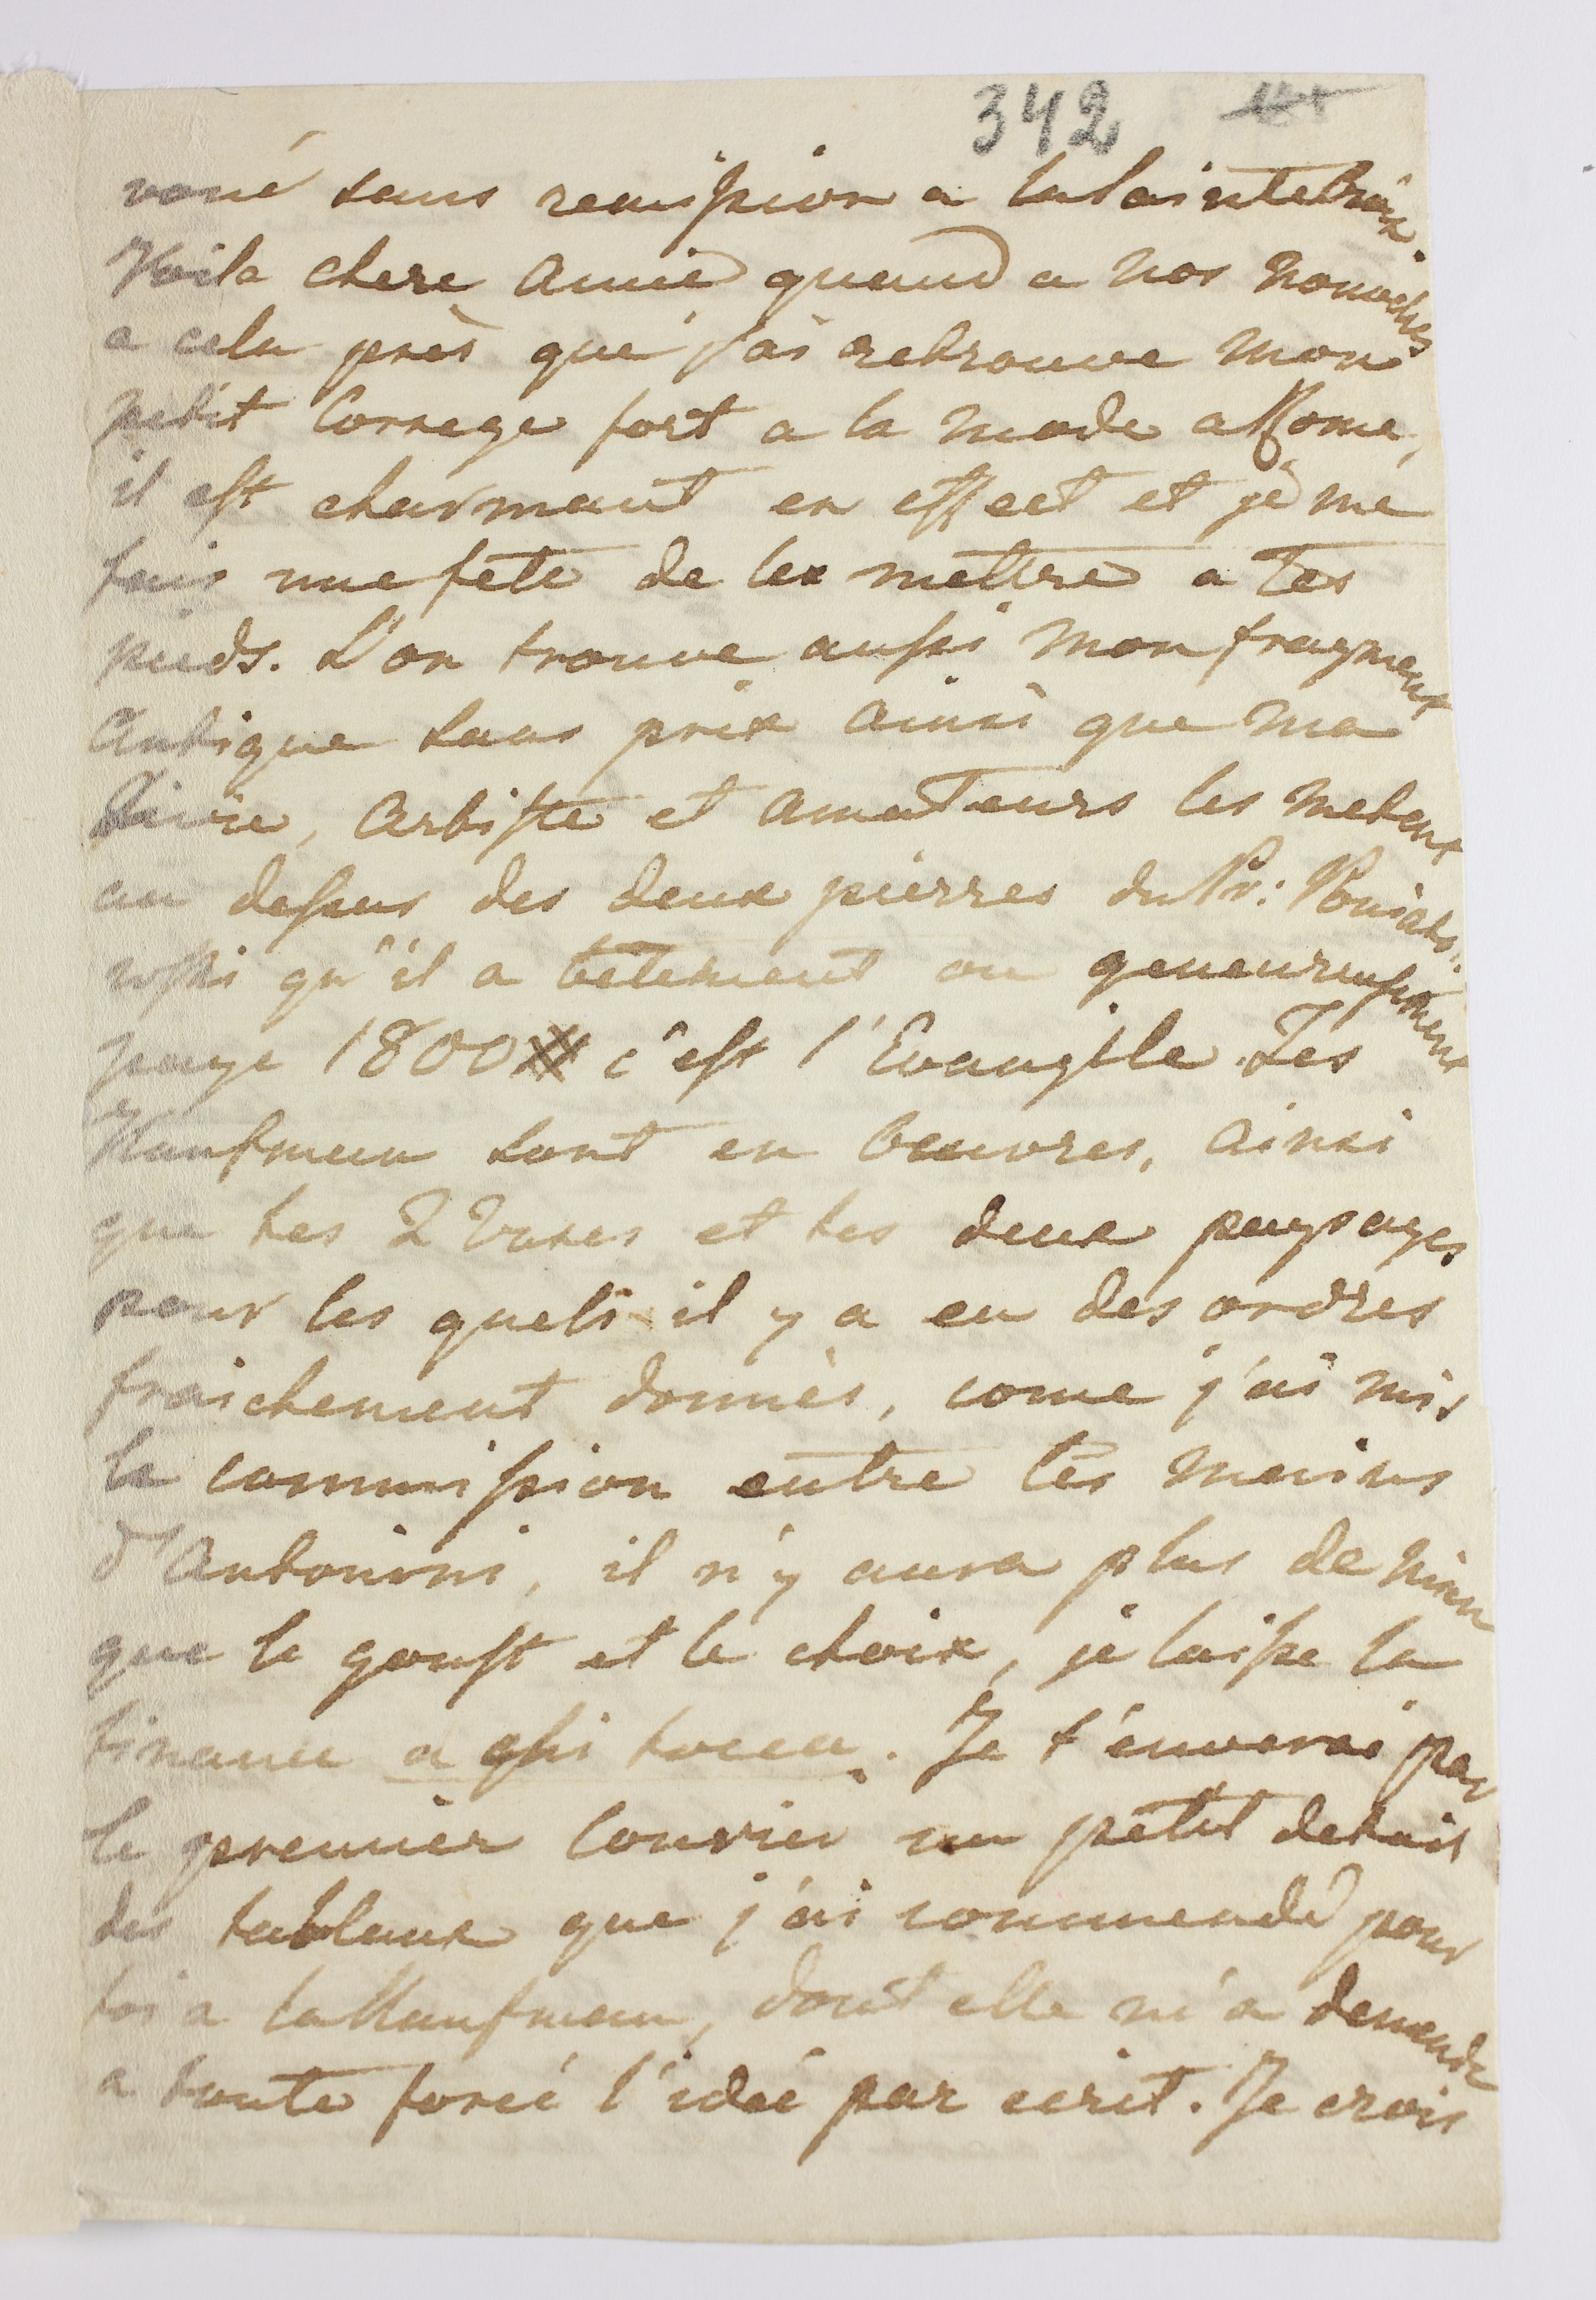 342
voué sans remission a la sainte Croix.
Voila chere Amie quand a nos nouvelles
a cela près que j'ai retrouve mon
petit Correge fort a la mode a Rome,
il est charmant en effect et je me
fais une fete de les mettre a tes
pieds. L'on trouve aussi mon fragment
Antique sans prix ainsi que ma
Livie, Artiste et Amateurs les metent
au dessus des deux pierres du Pr: Poniato:
wski qu'il a betement ou genereusement
paye 1800 # c'est l'Evangile. Les
Kaufman sont en Oeuvres, ainsi
que tes 2 Vases et tes deux paysages
pour les quels il y a eu des ordres
fraichement donnès, come j'ai mis
la commission entre les mains
d'Antonini, il n'y aura plus de mien
que le goust et le choix, je laisse la
finance a chi tocca. Je t'enverai par
le premier Courier un petit detail
des tableaux que j'ai commendé pour
toi a la Kaufman, dont elle m'a demende
a toute forcé l'idaé par ecrit. Je crois